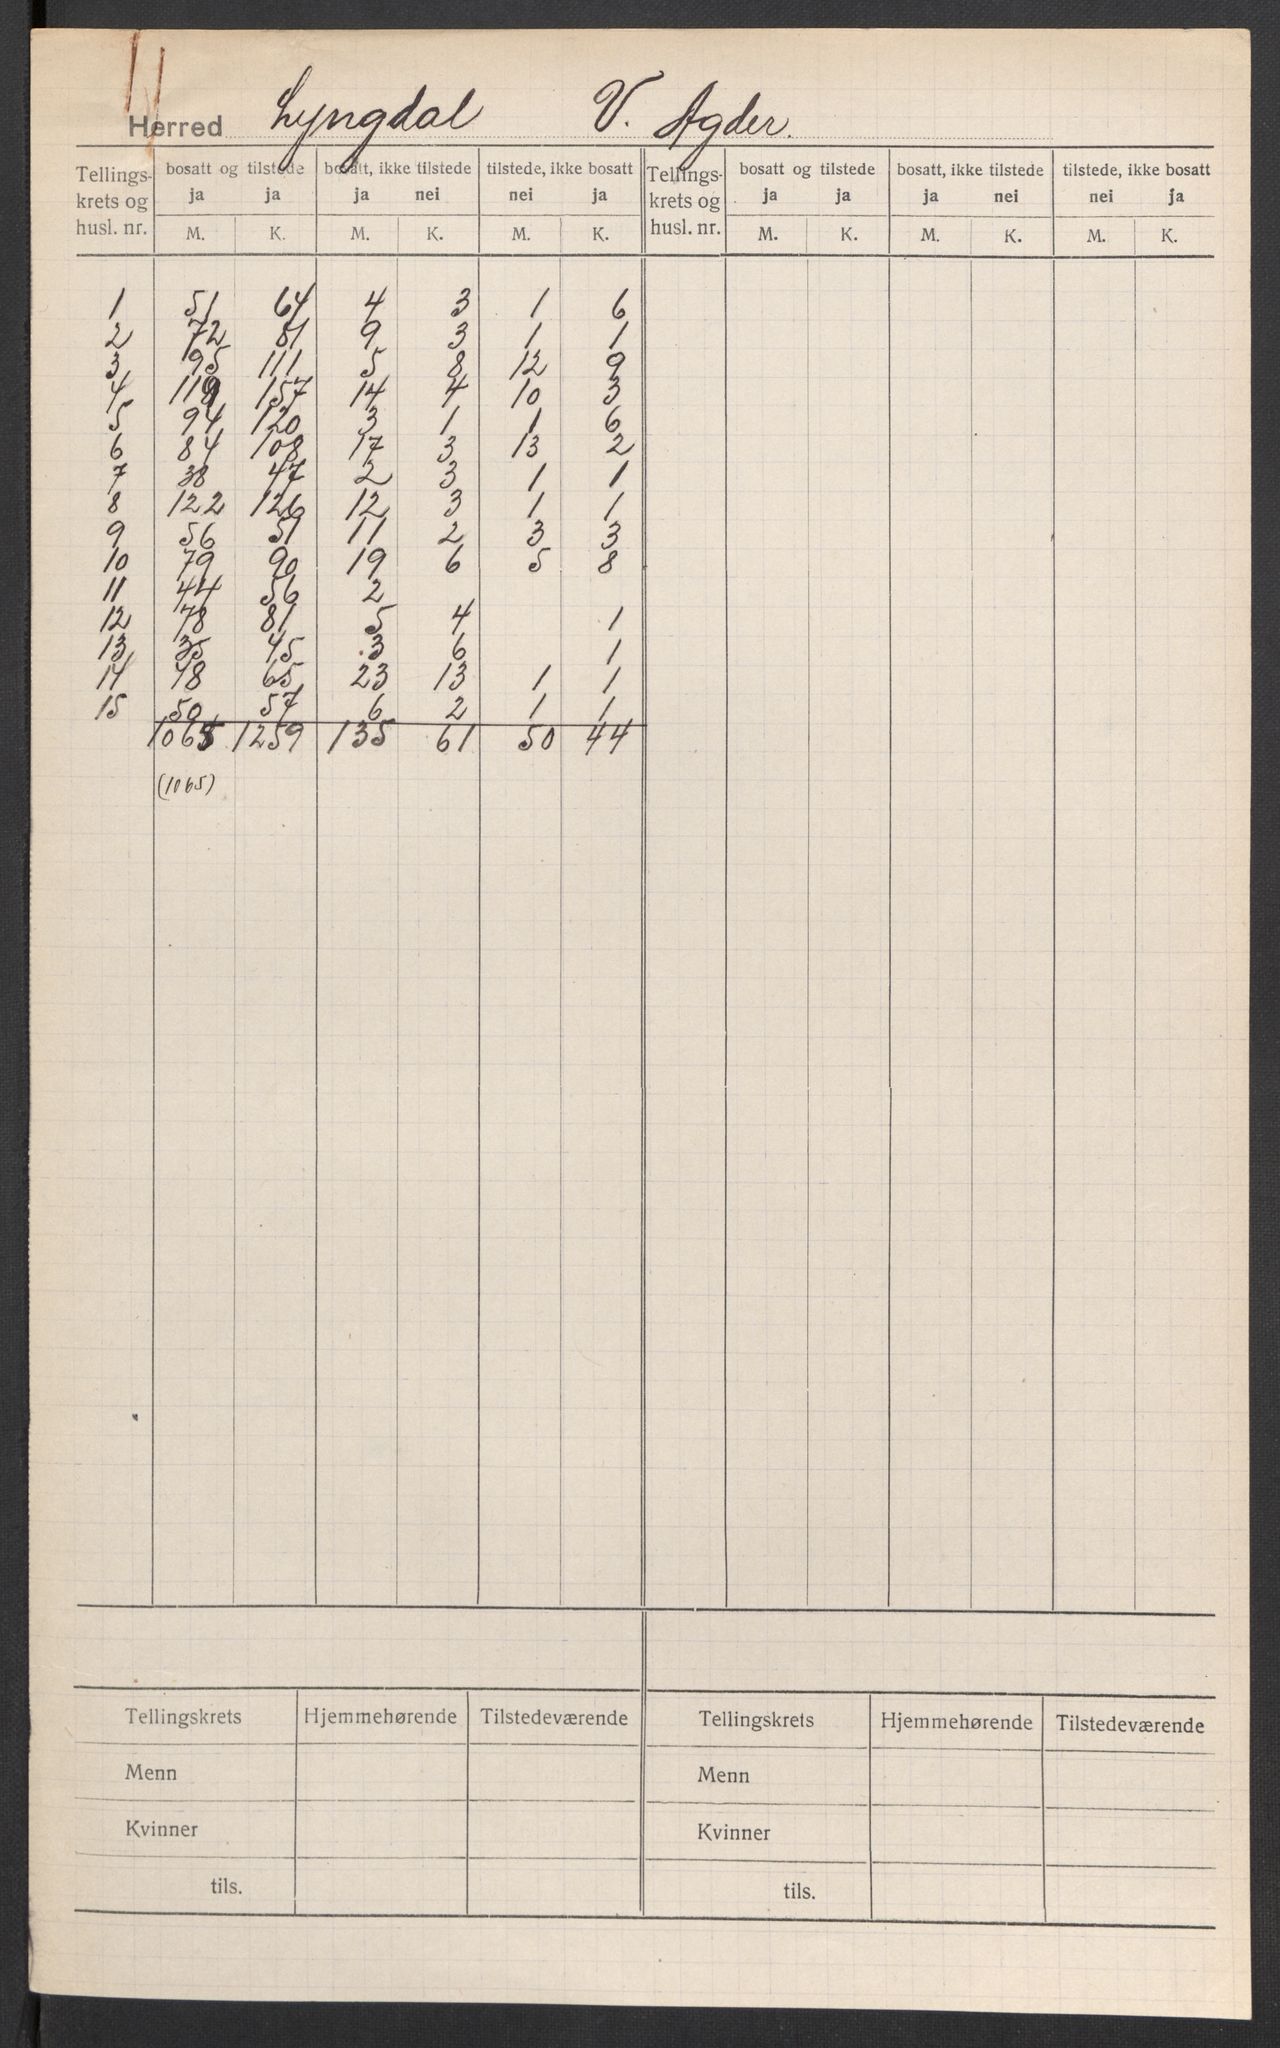 Herred Lyngdal V. Agder.
Tellings- krets og husl. nr. bosatt og tilstede bosatt, ikke tilstede tilstede, ikke bosatt Tellings- krets og husl. nr. bosatt og tilstede bosatt, ikke tilstede tilstede, ikke bosatt
ja ja ja nei nei ja ja ja ja nei nei ja
M. K. M. K. M. K. M. K. M. K. M. K.
1 51 64 4 3 1 6
2 72 81 9 3 1 1
3 95 111 5 8 12 9
4 119 157 14 4 10 3
5 94 120 3 1 1 6
6 84 108 17 3 13 2
7 38 47 2 3 1 1
8 122 126 12 3 1 1
9 56 51 11 2 3 3
10 79 90 19 6 5 8
11 44 56 2
12 78 81 5 4 1
13 35 45 3 6 1
14 48 65 23 13 1 1
15 50 57 6 2 1 1
1065 1259 135 61 50 44
(1065)
Tellingskrets Hjemmehørende Tilstedeværende Tellingskrets Hjemmehørende Tilstedeværende
Menn Menn
Kvinner Kvinner
tils. tils.